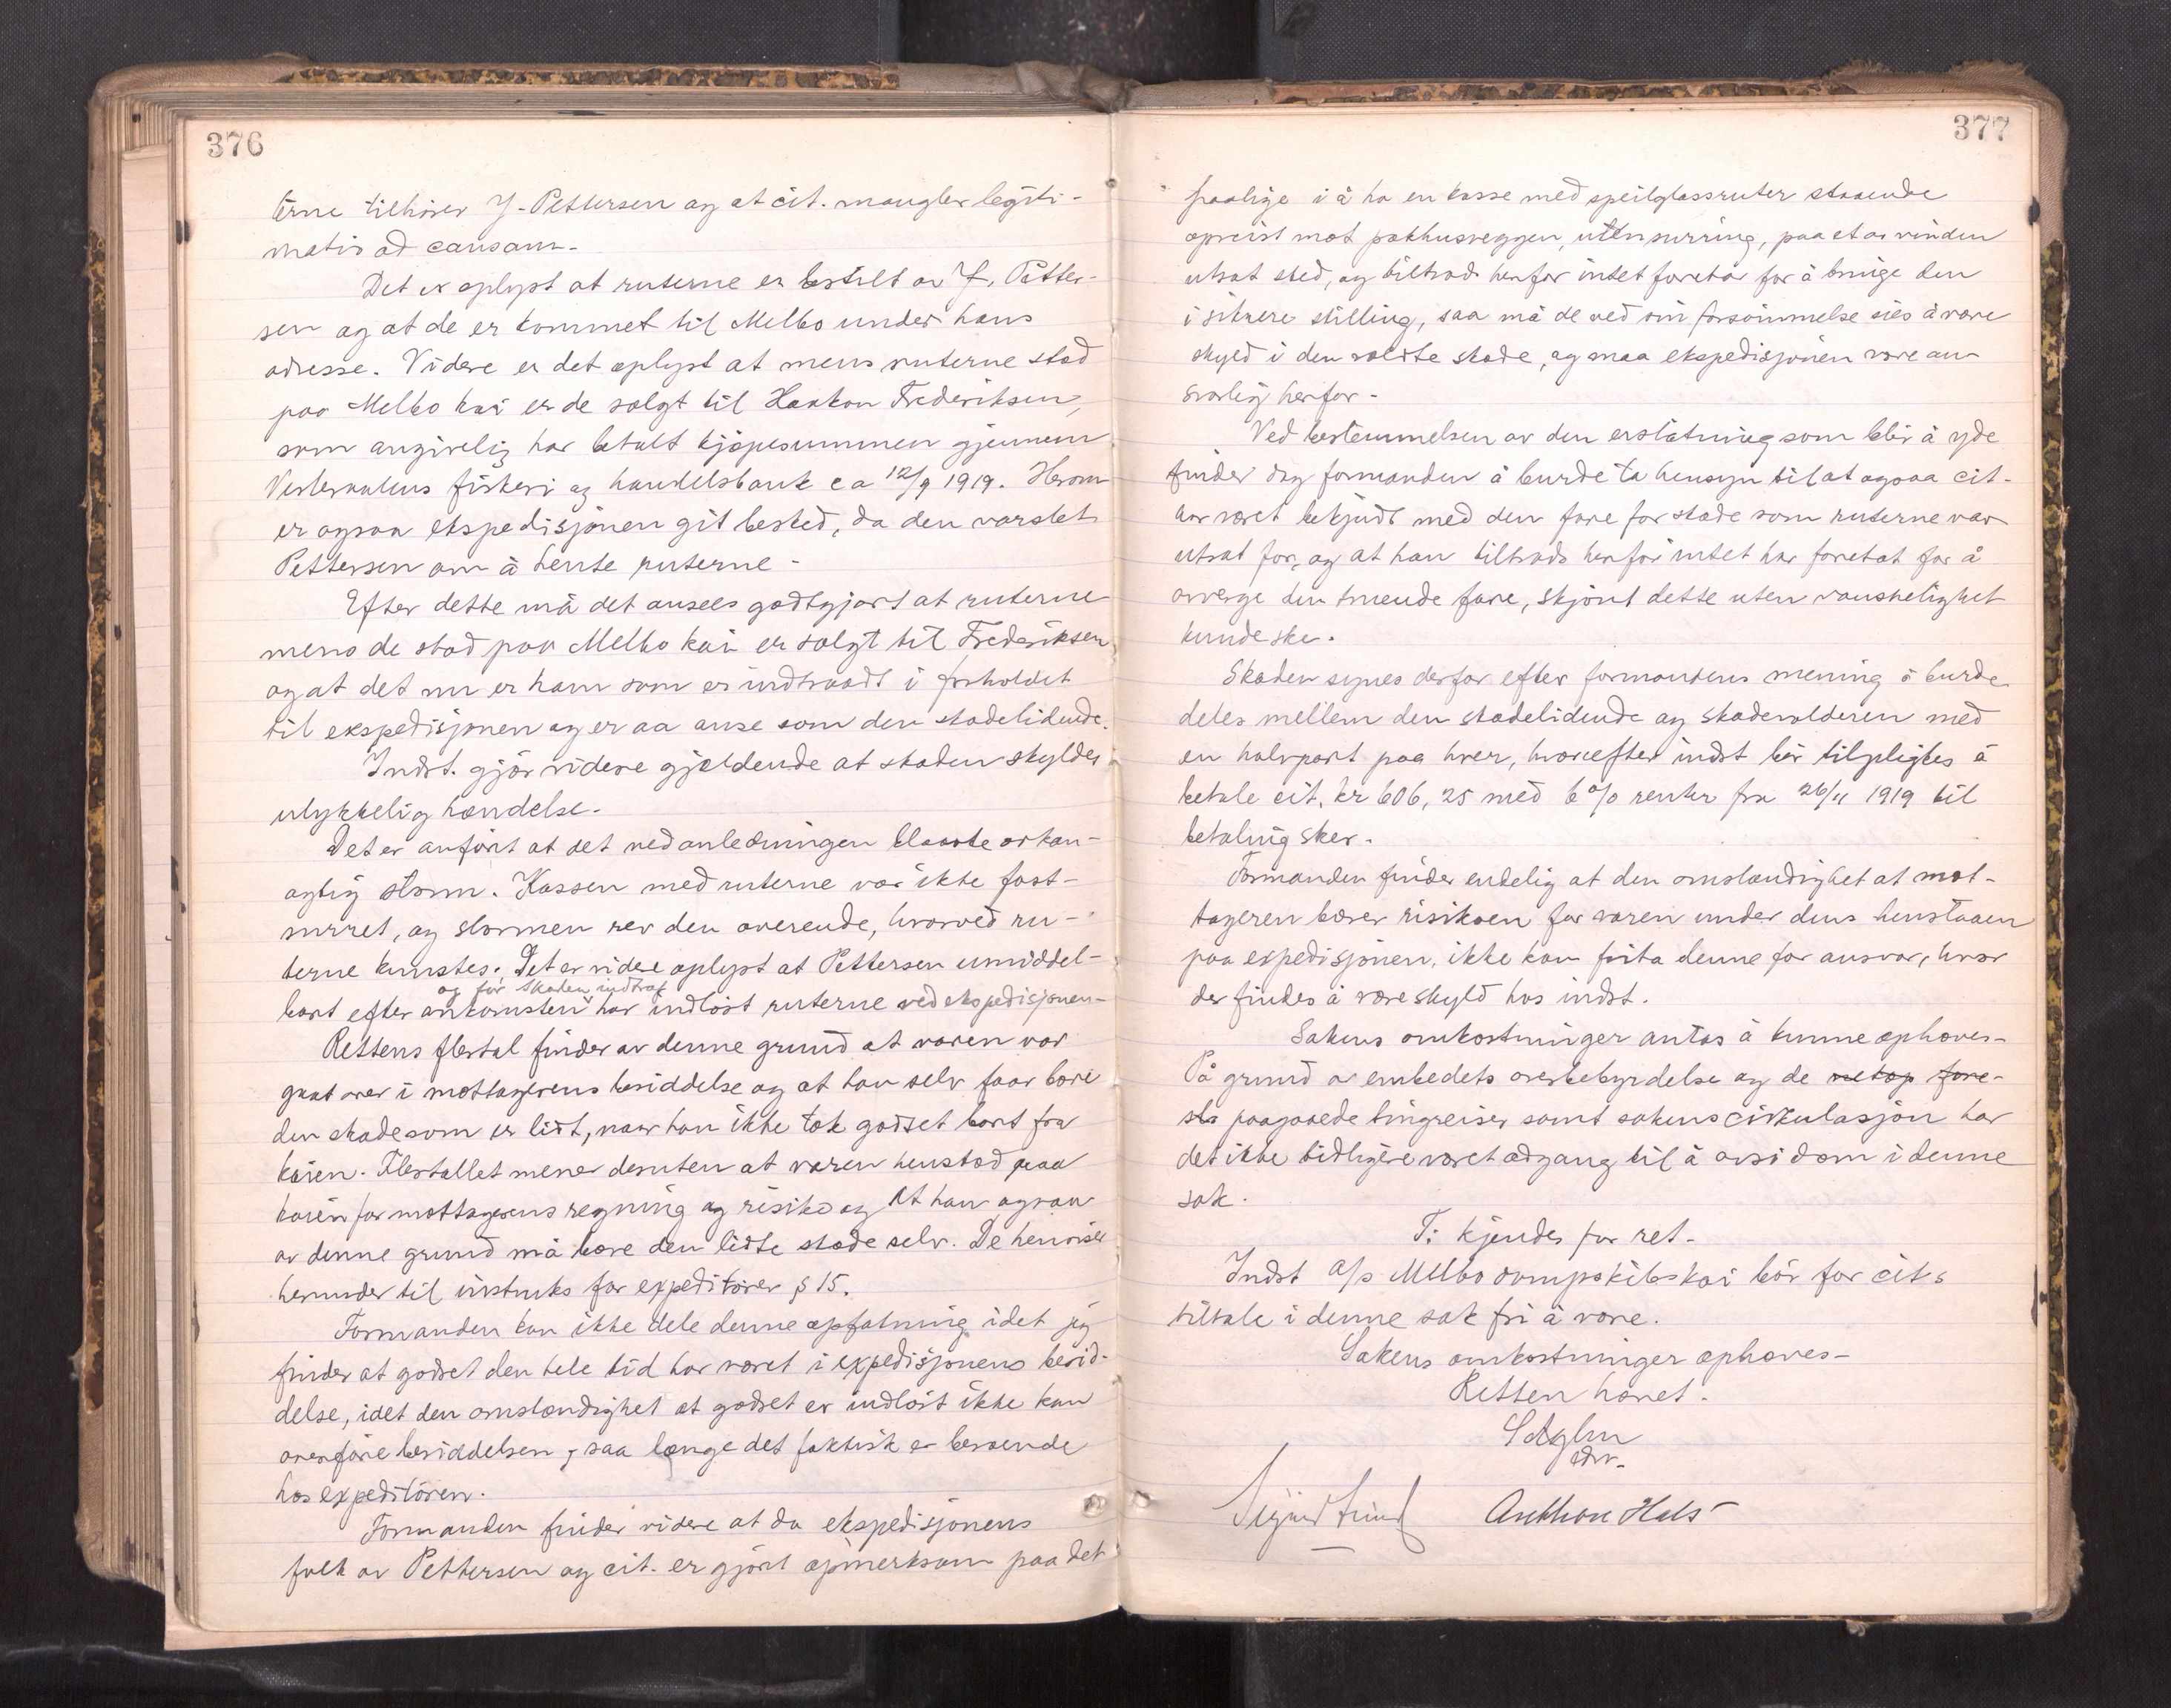 376
terne tilhører J. Pettersen og at cit. mangler legiti-
matio ad causam.
Det er oplyst at ruterne er bestilt av J. Petter-
sen og at de er kommet til Melbo under hans
adresse. Videre er det oplyst at mens ruterne stod
paa Melbo kai er de solgt til Haakon Frederiksen,
som angivelig har betalt kjøpesummen gjennem
Vesteraalens fiskeri og handelsbank ca 12/9 1919. Herom
er ogsaa ekspedisjonen git besked, da den varslet
Pettersen om å hente ruterne.
Efter dette må det ansees godtgjort at ruterne
mens de stod paa Melbo kai er solgt til Frederiksen
og at det nu er ham som er indtraadt i forholdet
til ekspedisjonen og er aa anse som den skadelidende.
Indst. gjør videre gjældende at skaden skyldes
ulykkelig hændelse.
Det er anført at det ved anledningen blaaste orkan-
agtig storm. Kassen med ruterne var ikke fast-
surret, og stormen rev den overende, hvorved ru-
terne knustes. Det er videre oplyst at Pettersen umiddel-
og før skaden indtraf
bart efter ankomsten har indløst ruterne ved ekspedisjonen.
Rettens flertal finder av denne grund at varen var
gaat over i mottagerens besiddelse og at han selv faar bære
den skade som er lidt, naar han ikke tok godset bort fra
kaien. Flertallet mener desuten at varen henstod paa
kaien for mottagerens regning og risiko og at han ogsaa
av denne grund må bære den lidte skade selv. De henviser
herunder til instruks for expeditører § 15.
Formanden kan ikke dele denne opfatning idet jeg
finder at godset den hele tid har været i expedisjonens besid-
delse, idet den omstændighet at godset er indløst ikke kan
overføre besiddelsen, saa længe det faktisk er beroende
hos expeditøren.
Formanden finder videre at da ekspedisjonens
folk av Pettersen og cit. er gjort opmerksom paa det
377
faalige i å ha en kasse med speilglassruter staaende
opreist mot pakhusveggen, uten surring, paa et av vinden
utsat sted, og tiltrods herfor intet foretar for å bringe den
i sikrere stilling, saa må de ved sin forsømmelse sies å være
skyld i den voldte skade, og maa ekspedisjonen være an-
svarlig herfor.
Ved bestemmelsen av den erstatning som blir å yde
finder dog formanden å burde ta hensyn til at ogsaa cit.
har været bekjendt med den fare for skade som ruterne var
utsat for, og at han tiltrods herfor intet har foretat for å
avverge den truende fare, skjønt dette uten vanskelighet
kunde ske.
Skaden synes derfor efter formandens mening å burde
deles mellem den skadelidende og skadevolderen med
en halvpart paa hver, hvorefter indst bør tilpligtes å
betale cit. kr 606,25 med 6 % renter fra 26/11 1919 til
betaling sker.
Formanden finder endelig at den omstændighet at mot-
tageren bærer risikoen for varen under dens henstaaen
paa expedisjonen, ikke kan frita denne for ansvar, hvor
der findes å være skyld hos indst.
Sakens omkostninger antas å kunne ophæves.
På grund av embedets overbebyrdelse og de netop fore-
sta paagaaede tingreiser samt sakens cirkulasjon har
det ikke tidligere været adgang til å avsi dom i denne
sak.
T: kjendes for ret.
Indst A/S Melbo dampskibskai bør for cit.s
tiltale i denne sak fri å være.
Sakens omkostninger ophæves.
Retten hævet.
Anthon Hals